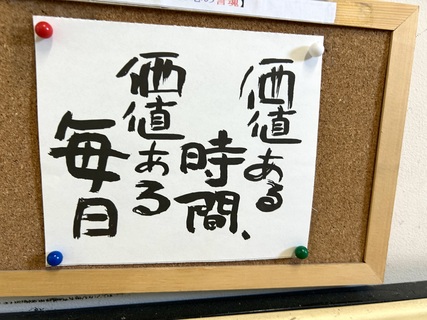 価値ある
時間、
価値ある
毎日